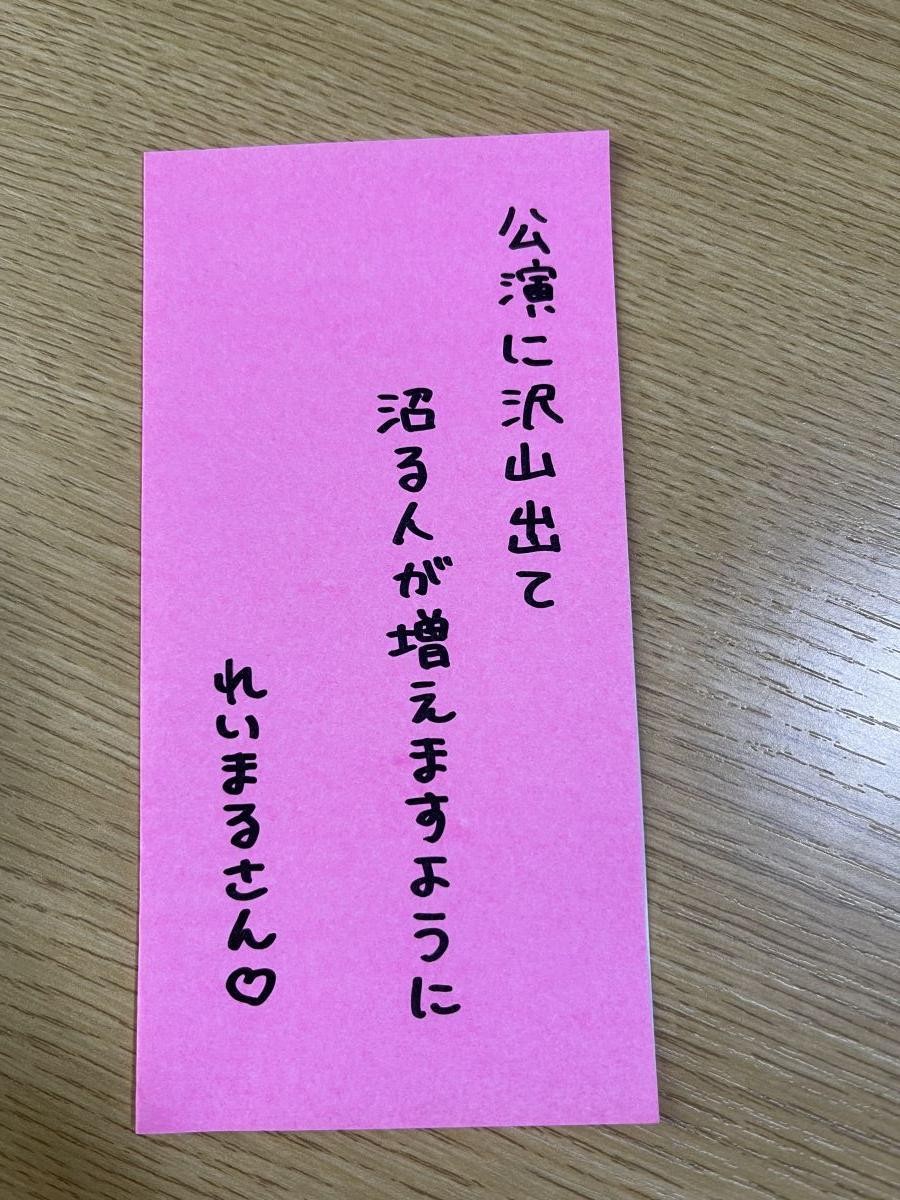 公演に沢山出て
沼る人が増えますように
れいまるさん♡